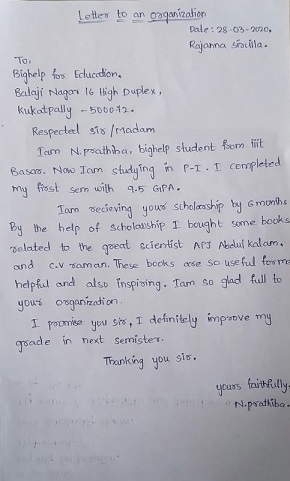 Letter to an organization
Date: 28-03-2020.
Rajanna sircilla.
To,
Bighelp for Education.
Balaji Nagar 16 High Duplex,
kukatpally - 500072.
Respected sir/Madam
Iam N.prathiba, bighelp student from iiit
Basar. Now Iam studying in P-I. I completed
my first sem with 9.5 GPA.
Iam recieving your scholarship by 6 months
By the help of scholarship I bought some books
related to the great scientist APJ Abdul kalam.
and C.V raman. These books are so useful forme
helpful and also inspiring. Iam so glad full to
your organization.
I promise you sir, I definitely improve my
grade in next semister.
Thanking you sir.
yours faithfully.
N.prathiba.